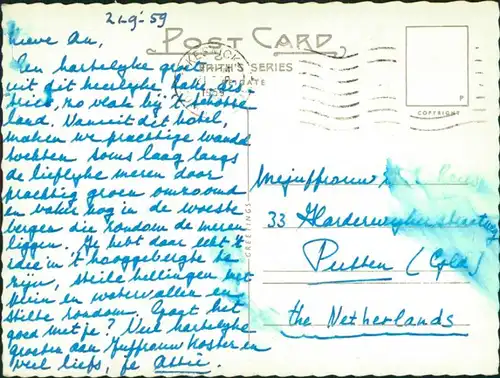 21-9-59
POST CARD
Lieve An,
FRITH'S SERIES
Een hartelijke groet
uit dit heerlijke Lake dis
trict, zo vlak bij 't Schotse
land. Vanuit dit hotel,
maken we prachtige wandel
tochten soms laag langs
de liefelijke meren door
prachtig groen omzoomd
en vaker nog in de woeste
bergen die rondom de meren
liggen. Je hebt daar echt 't
idee in 't hooggebergte te
zijn, steile hellingen met
puin en watervallen en
stilte rondom. Gaat het
goed met je? Veel hartelijke
groeten aan Juffrouw Koster en
veel liefs, je Attie.
COPYRIGHT
P
GREETINGS
Mejuffrouw
33 Harderwijkerstraatweg
Putten (Gld)
the Netherlands